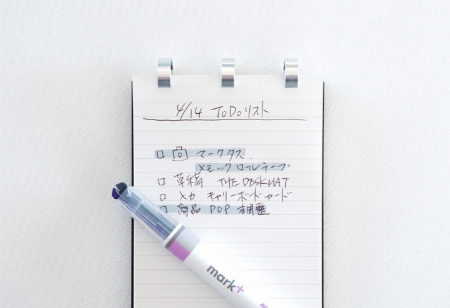 4/14 ToDoリスト
□ マークタス
メモック ロールテープ
□ 草稿 THE DESK MAT
□ 入力 キャリーボードカード
□ 商品 POP 調整
mark+